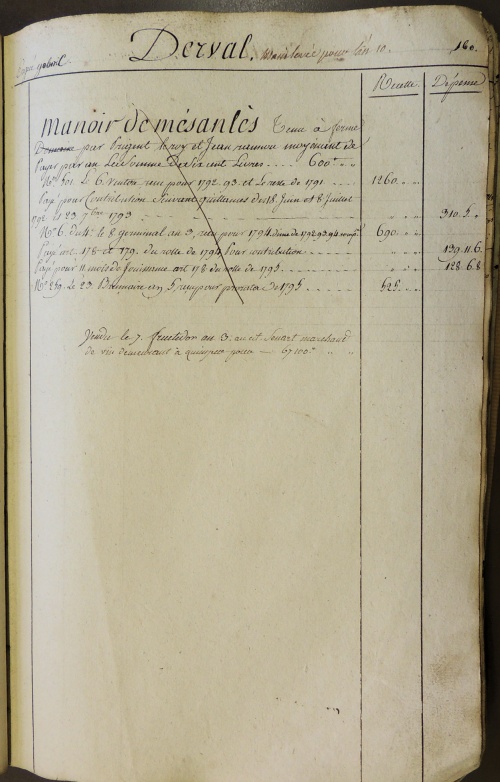 Derval. Mainlevée pour l'an 10. 160.
Recette Dépense
Manoir de mésanlès Tenu à ferme
Domaine par Prigent le roy et Jean riannou moyenant de
Payer par an La Somme De Six cent Livres .... 600.
N° 301 Le 6. Ventose reçu pour 1792. 93. et Le reste de 1791 1260.
Payé pour Contribution Suivant quittances des 18 Juin et 8 Juillet
1792 et 23 7bre 1793 310.5.
N° 6. du 8 germinal an 3, reçu pour 1794 690.
Payé art. 178 et 179. du rolle de 1794 Pour contribution 139.11.6.
Payé pour 11 mois de Jouissance art 178 du rolle de 1795 128.6.8
N° 259. Le 23. Brumaire an 5 reçu pour prorata De 1795 525.
Vendu le 7. fructidor an 3. au cit. marchand
de vin demeurant à quimper pour — 67100.